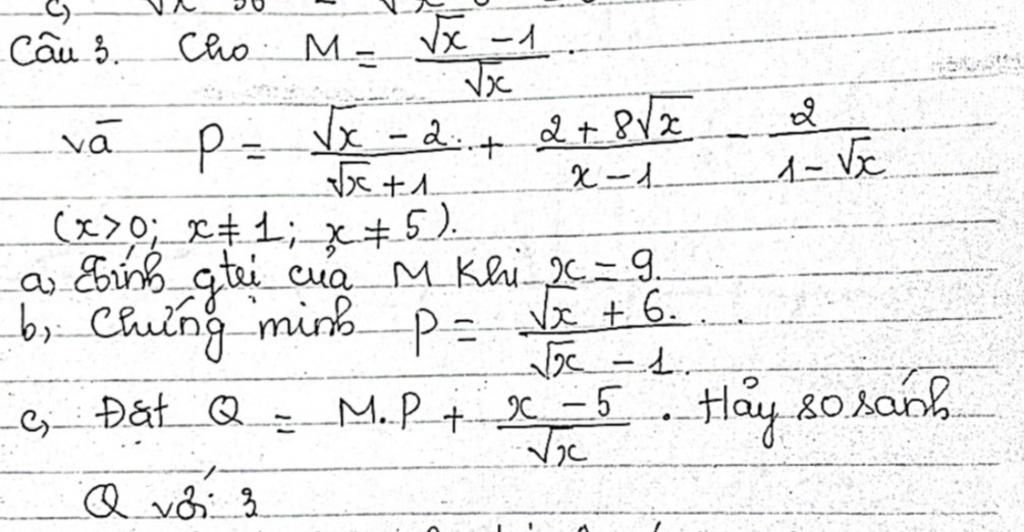 Câu 3. Cho M = (√x - 1)/√x.
và P = (√x - 2)/(√x + 1) + (2 + 8√x)/(x - 1) - 2/(1 - √x)
(x>0; x≠1; x≠5).
a, Tính gtrị của M khi x = 9.
b, Chứng minh P = (√x + 6)/(√x - 1).
c, Đặt Q = M.P + (x - 5)/√x. Hãy so sánh
Q với 3